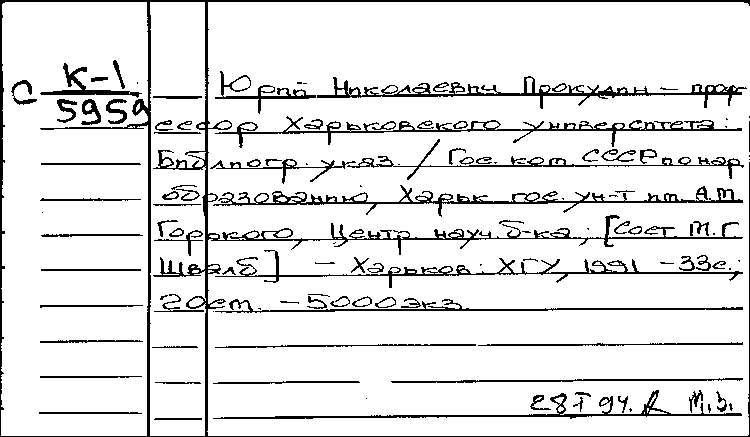 С К-1
5959
Юрий Николаевич Прокудин – проф-
ессор Харьковского университета:
Библиогр. указ. / Гос. ком. СССР по нар
образованию, Харьк. гос. ун-т им. А.М.
Горького, Центр. науч. б-ка; [Сост. М.Г.
Швалб] – Харьков: ХГУ, 1991 – 33с.;
20см. – 5000экз.
28 I 94. М.З.